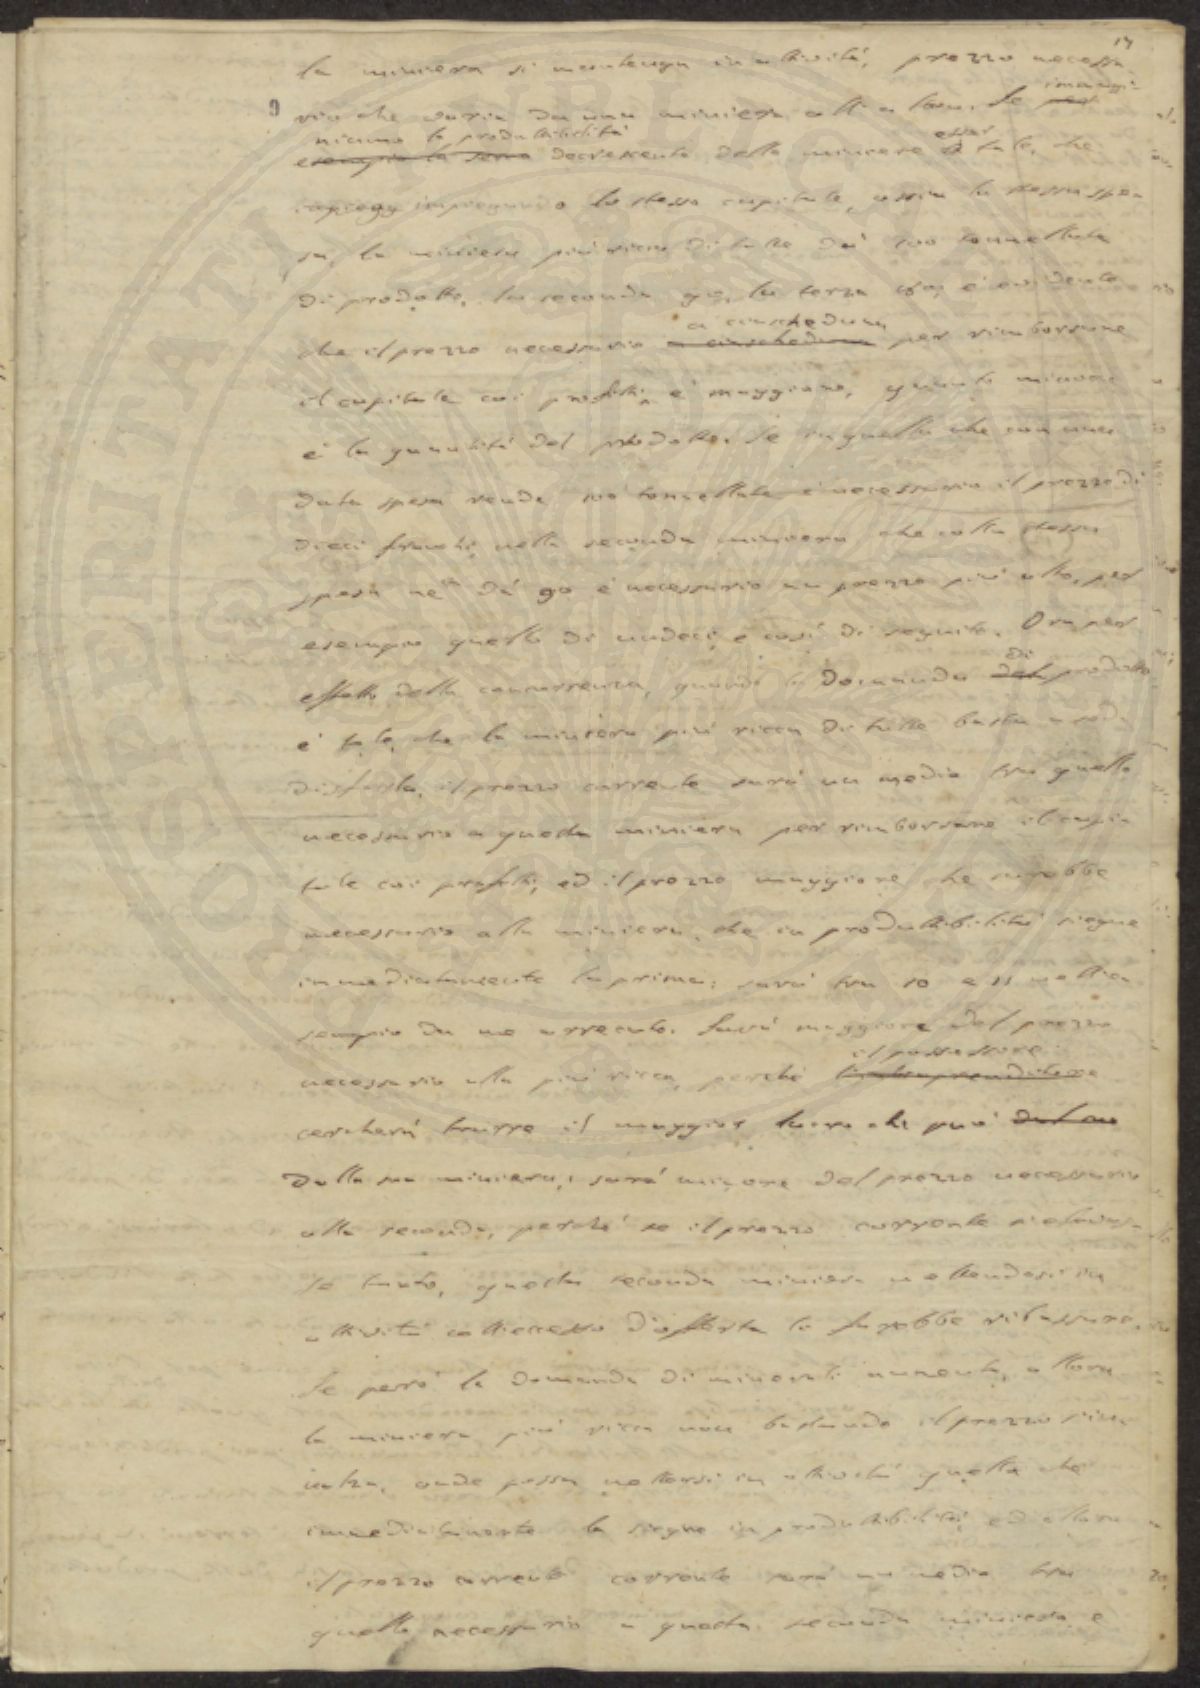 14
la miniera si mantenga in attività, prezzo necessa
rio che varia da una miniera all'altra. Se
immagi-
niamo la produttibilità
esempio la serie decrescente delle miniere
esser tale, che
impiegando lo stesso capitale, ossia la stessa spe-
sa, la miniera più ricca di tutte dà 100 tonnellate
di prodotto, la seconda 90, la terza 80, è evidente
a ciascheduna
che il prezzo necessario a ciascheduna per rimborsare
il capitale coi profitti, è maggiore, quanto minore
è la quantità del prodotto. Se in quella che con una
data spesa rende 100 tonnellate è necessario il prezzo di
dieci franchi, nella seconda miniera che colla stessa
spesa ne dà 90 è necessario un prezzo più alto, per
esempio quello di undeci, e così di seguito. Ora per
di
effetto della concorrenza, quando la domanda del prodotto
è tale, che la miniera più ricca di tutte basta a sod-
disfarla, il prezzo corrente sarà un medio tra quello
necessario a questa miniera per rimborsare il capi
tale coi profitti, ed il prezzo maggiore che sarebbe
necessario alla miniera, che in produttibilità siegue
immediatamente la prima: sarà tra 10 e 11 nell'e
sempio da me arrecato. Sarà maggiore del prezzo
il possessore
necessario alla più ricca, perché l'intraprenditore
cercherà trarre il maggior lucro che può dal suo
dalla sua miniera; sarà minore del prezzo necessario
alla seconda, perché se il prezzo corrente si elevas-
se tanto, questa seconda miniera mettendosi in
attività coll'eccesso d'offerta lo farebbe ribassare.
Se però la domanda di minerali aumenta, allora
la miniera più ricca non bastando il prezzo s'in-
nalza, onde possa mettersi in attività quella che
immediatamente la siegue in produttibilità, ed allora
il prezzo corrente corrente sarà un medio tra
quello necessario a questa seconda miniera e